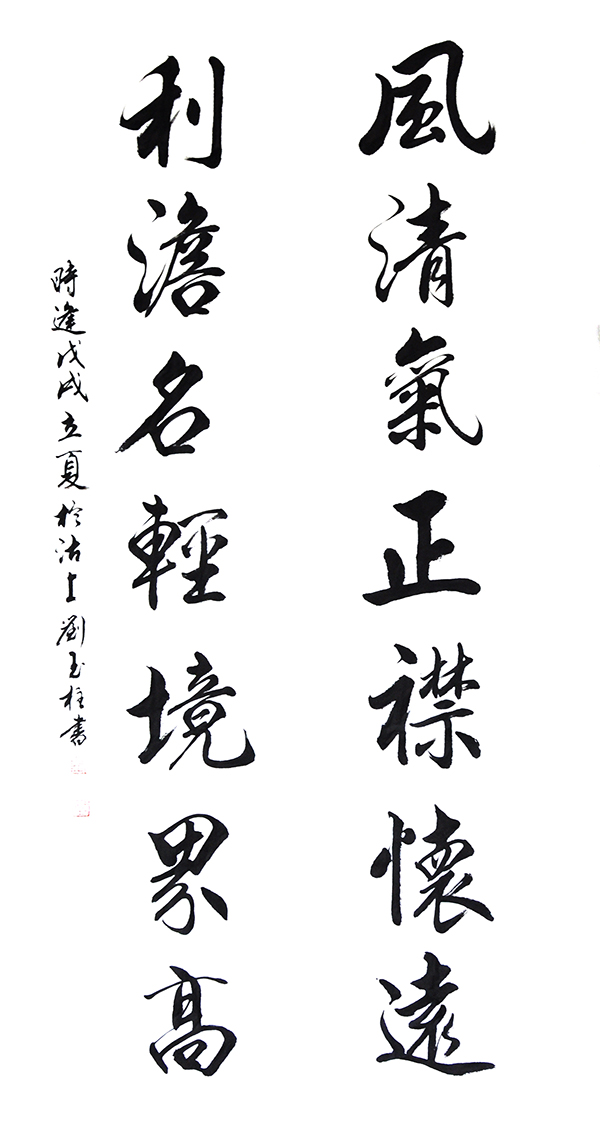 風清氣正襟懷遠
利澹名輕境界高
時逢戊戌立夏於沽上劉玉柱書